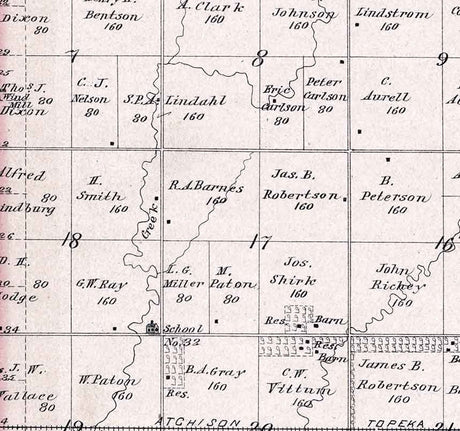 Bentson
160
Dixon
80
A. Clark
160
Johnson
160
Lindstrom
160
7
8
9
Thos J.
Wind
Mill
Dixon
80
C. J.
Nelson
80
S.P.A.
80
Lindahl
160
Eric
Carlson
80
Peter
Carlson
80
C.
Aurell
160
Alfred
80
H.
Smith
160
Creek
R.A. Barnes
160
Jas. B.
Robertson
160
B.
Peterson
160
18
17
16
D. H.
80
G.W. Ray
160
L. G.
Miller
80
M.
Paton
80
Jos.
Shirk
160
John
Rickey
160
Res.
Barn
School
No. 32
Res.
Barn
J. W.
Wallace
80
W. Paton
160
B.A. Gray
160
Res.
C.W.
Vittum
160
James B.
Robertson
160
19
ATCHISON
20
TOPEKA